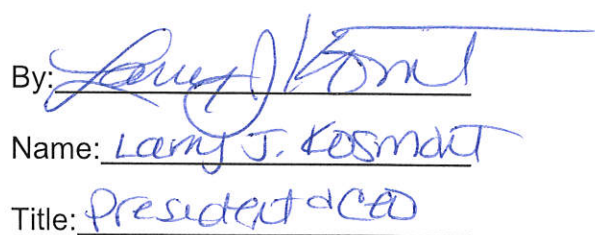 By: Larry J. Kosmont
Name: Larry J. Kosmont
Title: President & CEO